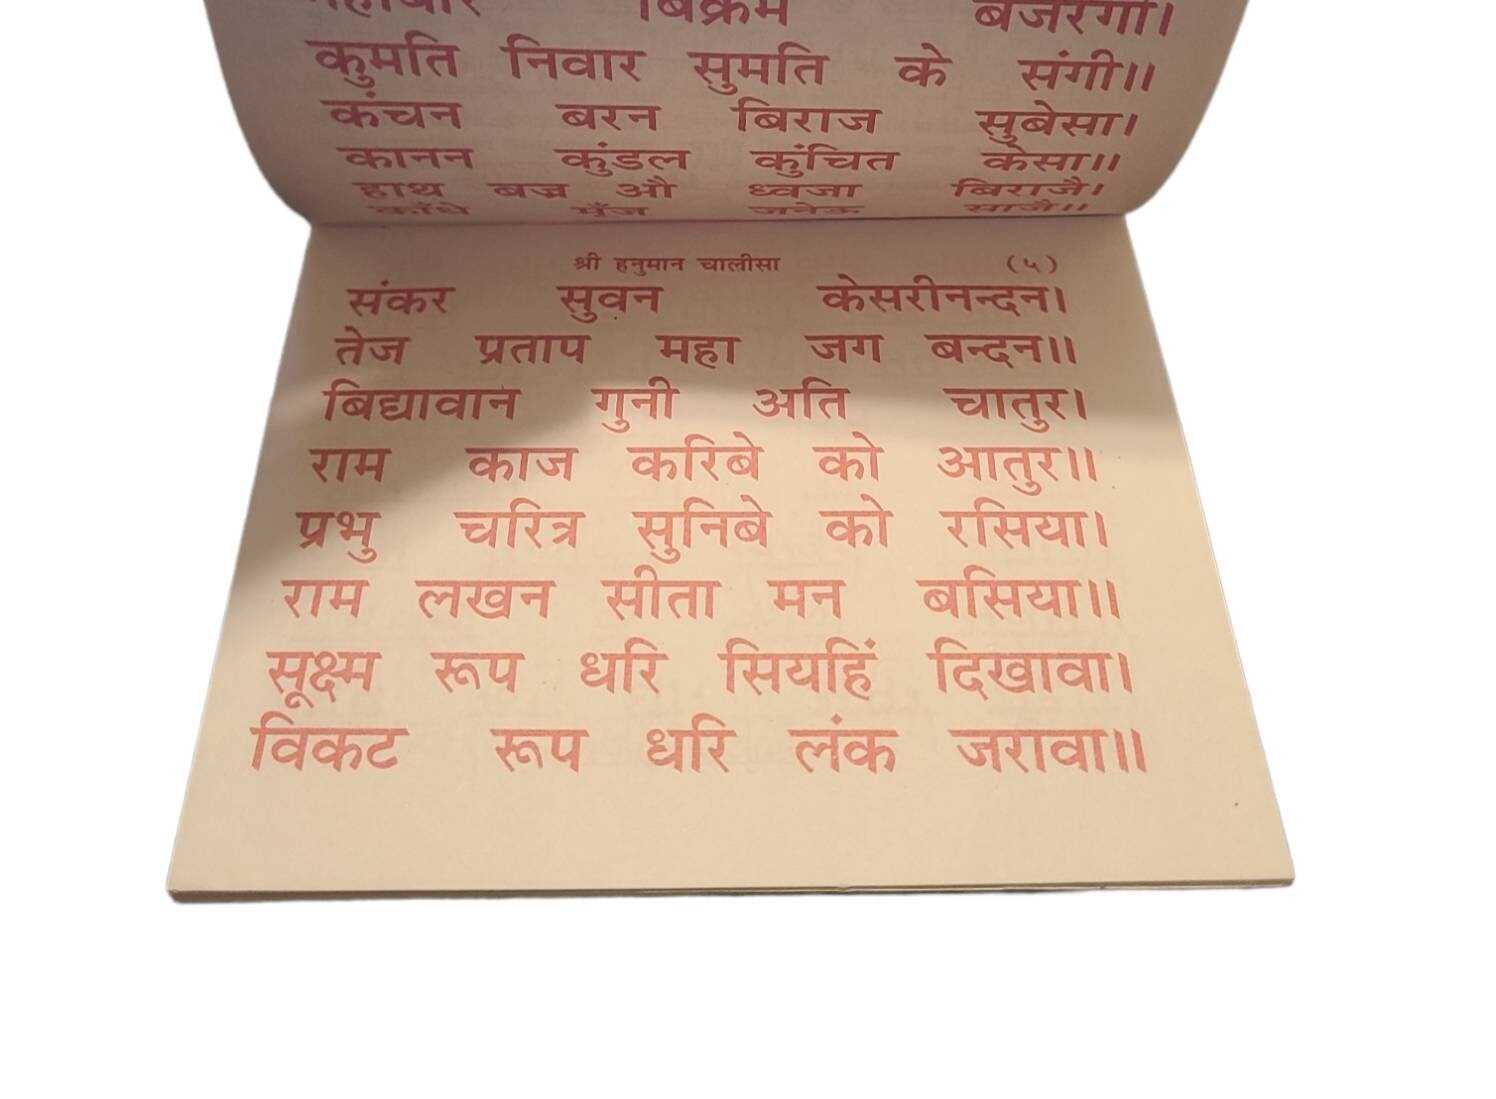 महाबीर बिक्रम बजरंगी।
कुमति निवार सुमति के संगी॥
कंचन बरन बिराज सुबेसा।
कानन कुंडल कुंचित केसा॥
हाथ बज्र औ ध्वजा बिराजै।
काँधे मूँज जनेऊ साजै॥
श्री हनुमान चालीसा (५)
संकर सुवन केसरीनन्दन।
तेज प्रताप महा जग बन्दन॥
बिद्यावान गुनी अति चातुर।
राम काज करिबे को आतुर॥
प्रभु चरित्र सुनिबे को रसिया।
राम लखन सीता मन बसिया॥
सूक्ष्म रूप धरि सियहिं दिखावा।
विकट रूप धरि लंक जरावा॥